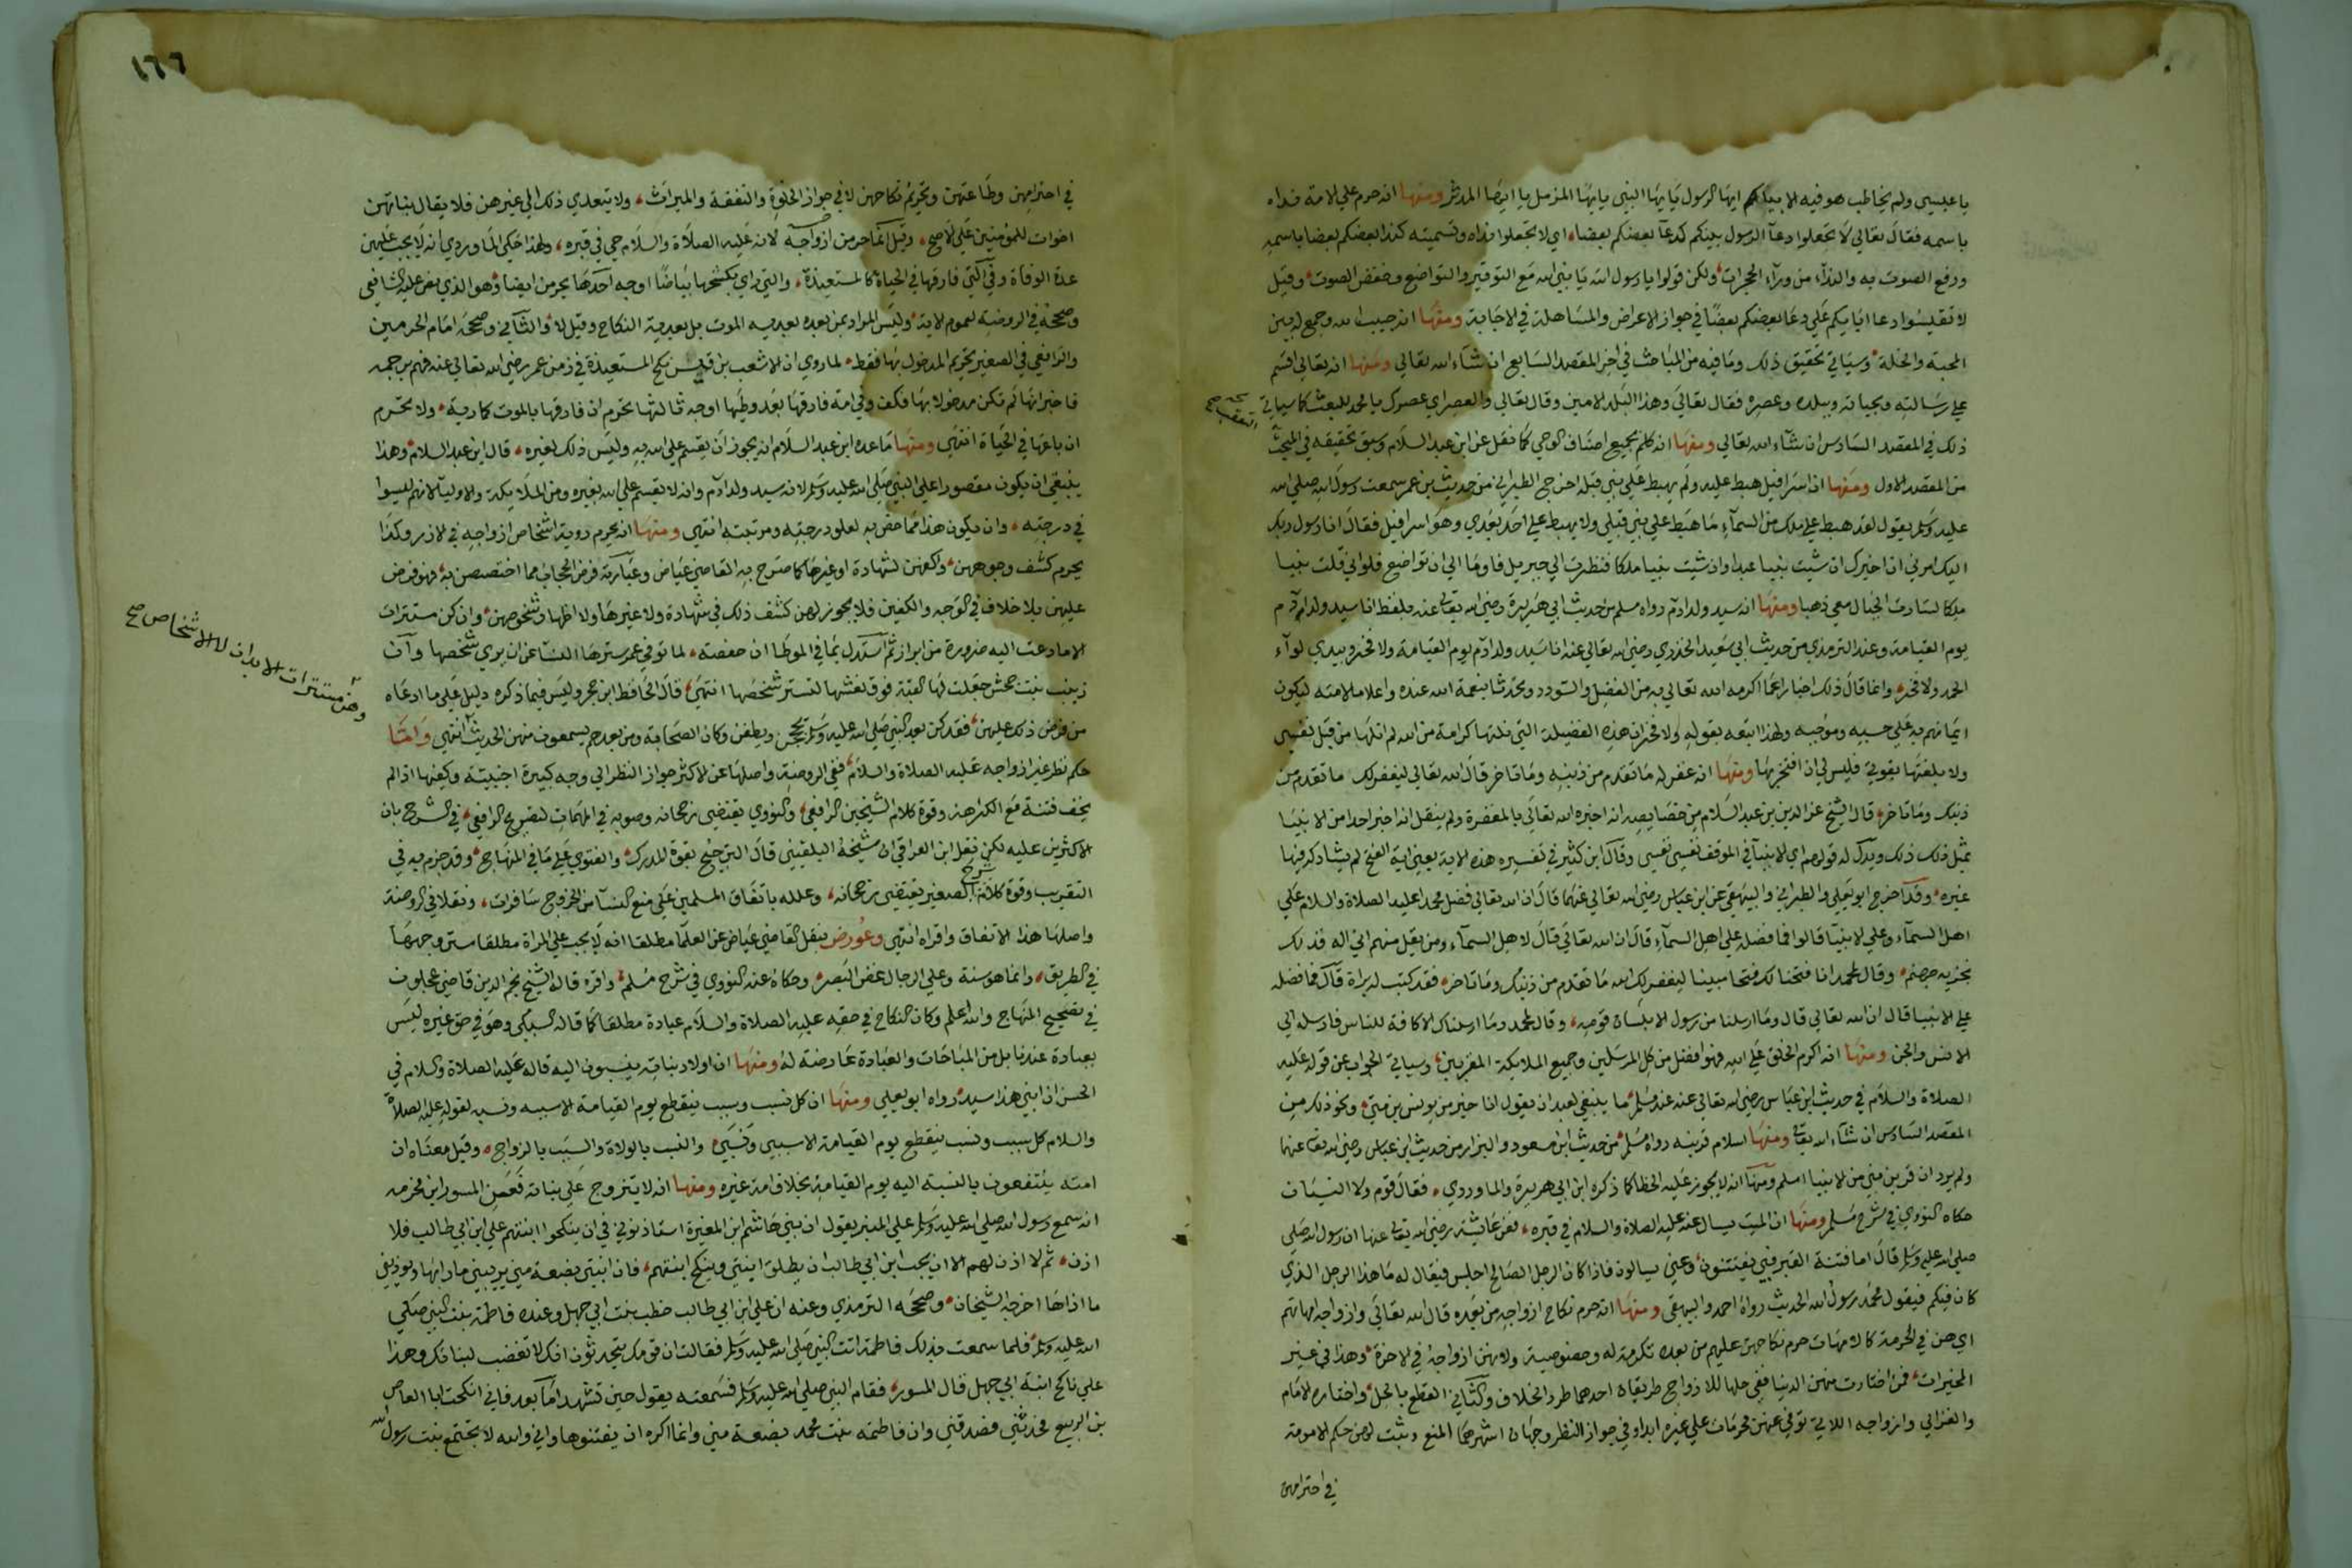 يا عيسى ولم يخاطب هو فيه الا بيا ايها الرسول يا ايها النبي يا ايها المزمل يا ايها المدثر ومنها انه حرم على الامة نداه
باسمه فقال تعالى لا تجعلوا دعآ الرسول بينكم كدعآ بعضكم بعضا، اي لا تجعلوا نداه وتسميته كنداء بعضكم بعضا باسمه
ورفع الصوت به والندآء من ورآء الحجرات، ولكن قولوا يا رسول الله يا نبي الله مع التوقير والتواضع وخفض الصوت، وقيل
لا تقيسوا دعا اياكم على دعا بعضكم بعضا في جواز الاعراض والمساهلة في الاجابة ومنها انه حبيب الله وجمع له بين
المحبة والخلة، وسياتي تحقيق ذلك وما فيه من المباحث في اخر المقصد السابع ان شآء الله تعالى ومنها انه تعالى اقسم
على رسالته وبحياته وببلده وعصره فقال تعالى وهذا البلد الامين وقال تعالى والعصر اي عصرك يا محمد كما سياتي
ذلك في المقصد السادس ان شآء الله تعالى ومنها انه كلم بجميع اصناف الوحي كما نقل عن ابن عبد السلام وسبق تحقيقه في المبحث
من المقصد الاول ومنها ان اسرافيل هبط عليه ولم يهبط على نبي قبله اخرج الطبراني من حديث بن عمر سمعت رسول الله صلى الله
عليه وسلم يقول لقد هبط علي ملك من السمآء ما هبط على نبي قبلي ولا يهبط على احد بعدي وهو اسرافيل فقال انا رسول ربك
اليك امرني ان اخيرك ان شيت نبيا عبدا وان شيت نبيا ملكا فنظرت الى جبريل فاوما الي ان تواضع فلو اني قلت نبيا
ملكا لسارت الجبال معي ذهبا ومنها انه سيد ولد ادم رواه مسلم من حديث ابي هريرة رضي الله تعالى عنه بلفظ انا سيد ولد ادم
يوم القيامة وعند الترمذي من حديث ابي سعيد الخدري رضي الله تعالى عنه انا سيد ولد ادم يوم القيامة ولا فخر وبيدي لوآء
الحمد ولا فخر، وانما قال ذلك اخبارا عما اكرمه الله تعالى به من الفضل والسودد وتحدثا بنعمة الله عنده واعلاما لامته ليكون
ايمانهم به على حسبه وموجبه ولهذا اتبعه بقوله ولا فخر ان هذه الفضيلة التي نلتها كرامة من الله لم انلها من قبل نفسي
ولا بلغتها بقوتي فليس لي ان افتخر بها ومنها انه غفر له ما تقدم من ذنبه وما تاخر قال الله تعالى ليغفر لك ما تقدم من
ذنبك وما تاخر، قال الشيخ عز الدين بن عبد السلام من خصايصه انه اخبره الله تعالى بالمغفرة ولم ينقل انه اخبر احدا من الانبيا
بمثل ذلك ويدل له قولهم اي الانبيآ في الموقف نفسي نفسي وقال ابن كثير في تفسيره هذه الاية يعني اية الفتح لم يشاركه فيها
غيره، وقد اخرج ابو يعلى والطبراني والبيهقي عن ابن عباس رضي الله تعالى عنهما قال ان الله تعالى فضل محمدا عليه الصلاة والسلام على
اهل السمآء وعلى الانبيآ قالوا فما فضله على اهل السمآء قال ان الله تعالى قال لاهل السمآء ومن يقل منهم اني اله فذلك
نجزيه جهنم، وقال لمحمد انا فتحنا لك فتحا مبينا ليغفر لك الله ما تقدم من ذنبك وما تاخر، فقد كتب له براة قال فما فضله
على الانبيا قال ان الله تعالى قال وما ارسلنا من رسول الا بلسان قومه، وقال لمحمد وما ارسلناك الا كافة للناس فارسله الى
الانس والجن ومنها انه اكرم الخلق على الله فهو افضل من كل المرسلين وجميع الملايكة المقربين، وسياتي الجواب عن قوله عليه
الصلاة والسلام في حديث ابن عباس رضي الله تعالى عنه عند مسلم، ما ينبغي لعبد ان يقول انا خير من يونس بن متى، ونحو ذلك من
المقصد السادس ان شآء الله تعالى ومنها اسلام قرينه رواه مسلم من حديث ابن مسعود والبزار من حديث ابن عباس رضي الله تعالى عنهما
ولم يرد ان قرين نبي من الانبيا اسلم ومنها انه لا يجوز عليه الخطا كما ذكره ابن ابي هريرة والماوردي، فقال قوم ولا النسيان
حكاه النووي في شرح مسلم ومنها ان الميت يسال عنه عليه الصلاة والسلام في قبره، فعن عائشة رضي الله تعالى عنها ان رسول الله صلى
صلى الله عليه وسلم قال اما فتنة القبر فبي يفتتنون، وعني يسالون فاذا كان الرجل الصالح اجلس فيقال له ما هذا الرجل الذي
كان فيكم فيقول محمد رسول الله الحديث رواه احمد والبيهقي ومنها انه حرم نكاح ازواجه من بعده قال الله تعالى وازواجه امهاتهم
اي هن في الحرمة كالامهات حرم نكاحهن عليهم من بعده تكرمة له وخصوصية ولانهن ازواجه في الاخرة، وهذا في غير
المخيرات، فمن اختارت منهن الدنيا ففي حلها للازواج طريقان احدهما طرد الخلاف والثاني القطع بالحل، واختاره الامام
والغزالي وازواجه اللاتي توفي عنهن محرمات على غيره ابدا وفي جواز النظر وجهان اشهرهما المنع وثبت لهن حكم الامومة
في احترامهن
١٦٦
في احترامهن وطاعتهن وتحريم نكاحهن لا في جواز الخلوة والنفقة والميراث، ولا يتعدى ذلك الى غيرهن فلا يقال بناتهن
اخوات للمؤمنين على الاصح، وقيل انما حرمن ازواجه لانه عليه الصلاة والسلام حي في قبره، ولهذا حكى الماوردي انه لا يجب عليهن
عدة الوفاة وفي التي فارقها في الحياة كالمستعيذة، والتي راى بكشحها بياضا اوجه احدها يحرمن ايضا، وهو الذي نص عليه الشافعي
وصححه في الروضة لعموم الاية، وليس المراد بمن بعده بعدية الموت بل بعدية النكاح وقيل لا، والثاني وصححه امام الحرمين
والرافعي في الصغير تحريم المدخول بها فقط، لما روي ان الاشعث بن قيس نكح المستعيذة في زمن عمر رضي الله تعالى عنه فهم برجمه
فاخبر انها لم تكن مدخولا بها فكف وفي امة فارقها بعد وطيها اوجه ثالثها تحرم ان فارقها بالموت كمارية، ولا تحرم
ان باعها في الحياة انتهى ومنها ما عده ابن عبد السلام انه يجوز ان يقسم على الله به وليس ذلك لغيره، قال ابن عبد السلام، وهذا
ينبغي ان يكون مقصورا على النبي صلى الله عليه وسلم لانه سيد ولد ادم وانه لا يقسم على الله بغيره ومن الملايكة والاوليا لانهم ليسوا
في درجته، وان يكون هذا مما خص به لعلو درجته ومرتبته انتهى ومنها انه يحرم رؤية اشخاص ازواجه في الازر وكذا
يحرم كشف وجوههن، واكفهن لشهادة او غيرها كما صرح به القاضي عياض وعبارته فرض الحجاب مما اختصصن به، فهو فرض
عليهن بلا خلاف في الوجه والكفين فلا يجوز لهن كشف ذلك في شهادة ولا غيرها ولا اظهار شخوصهن، وان كن مستترات
الا ما دعت اليه ضرورة من ابراز ثم استدل بما في الموطا ان حفصة، لما توفي عمر سترها النسا عن ان يرى شخصها وان
زينب بنت جحش جعلت لها القبة فوق نعشها لتستر شخصها انتهى، قال الحافظ ابن حجر وليس فيما ذكره دليل على ما ادعاه
من فرض ذلك عليهن، فقد كن بعد النبي صلى الله عليه وسلم يحججن ويطفن وكان الصحابة ومن بعدهم يسمعون منهن الحديث انتهى واما
حكم نظر غير ازواجه عليه الصلاة والسلام، ففي الروضة، واصلها عن الاكثر جواز النظر الى وجه كبيرة اجنبية وكفيها اذا لم
يخف فتنة مع الكراهة وقوة كلام الشيخين الرافعي، والنووي يقتضي رجحانه وصوبه في المهمات لتصريح الرافعي، في الشرح بان
الاكثرين عليه لكن نقل ابن العراقي ان شيخه البلقيني قال الترجيح بقوة المدرك، والفتوى على ما في المنهاج، وقد جزم به في
التقريب وقوة كلام الشرح الصغير يقتضي رجحانه، وعلله باتفاق المسلمين على منع النسآ من الخروج سافرات، ونقلا في الروضة
واصلها هذا الاتفاق واقراه انتهى وعورض بنقل القاضي عياض عن العلمآ مطلقا انه لا يجب على المراة مطلقا ستر وجهها
في الطريق، وانما هو سنة وعلى الرجال غض البصر، وحكاه عنه النووي في شرح مسلم، واقره قاله الشيخ نجم الدين قاضي عجلون
في تصحيح المنهاج والله اعلم وكان النكاح في حقه عليه الصلاة والسلام عبادة مطلقا كما قاله السبكي وهو في حق غيره ليس
بعبادة عندنا بل من المباحات والعبادة عارضة له ومنها ان اولاد بناته ينسبون اليه قاله عليه الصلاة والسلام في
الحسن ان ابني هذا سيد، رواه ابو يعلى ومنها ان كل نسب وسبب ينقطع يوم القيامة الا سببه ونسبه لقوله عليه الصلاة
والسلام كل سبب ونسب ينقطع يوم القيامة الا سببي ونسبي، والنسب بالولادة والسبب بالزواج، وقيل معناه ان
امته ينتفعون بالنسبة اليه يوم القيامة بخلاف امة غيره ومنها انه لا يتزوج على بناته فعن المسور ابن مخرمة
انه سمع رسول الله صلى الله عليه وسلم على المنبر يقول ان بني هاشم ابن المغيرة استاذنوني في ان ينكحوا ابنتهم علي ابن ابي طالب فلا
اذن، ثم لا اذن لهم الا ان يحب ابن ابي طالب ان يطلق ابنتي وينكح ابنتهم، فان ابنتي بضعة مني يريبني ما رابها ويوذيني
ما اذاها اخرجه الشيخان، وصححه الترمذي وعنه ان علي ابن ابي طالب خطب بنت ابي جهل وعنده فاطمة بنت النبي صلى
الله عليه وسلم، فلما سمعت بذلك فاطمة اتت النبي صلى الله عليه وسلم فقالت ان قومك يتحدثون انك لا تغضب لبناتك وهذا
علي ناكح ابنة ابي جهل قال المسور، فقام النبي صلى الله عليه وسلم فسمعته يقول حين تشهد اما بعد فاني انكحت ابا العاص
بن الربيع فحدثني فصدقني وان فاطمة بنت محمد بضعة مني وانما اكره ان يفتنوها واني والله لا تجتمع بنت رسول الله
وهن مستترات الابدان لا الاشخاص صح